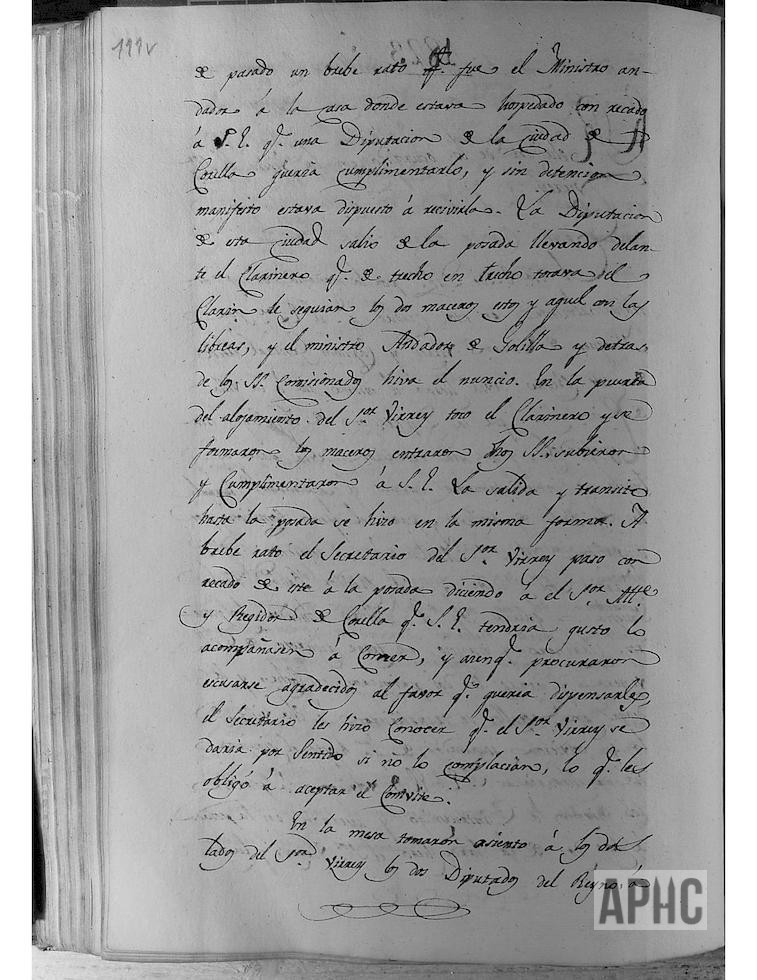 111v
de pasado un brebe rato q.e fue el Ministro an-
dador á la casa donde estava hospedado con recado
á S. E. q.e una Diputacion de la Ciudad de
Corella queria cumplimentarlo, y sin detencion
manifesto estava dispuesto á recivirla. La Diputacion
de esta Ciudad salio de la posada llevando delan-
te el Clarinero q.e de trecho en trecho tocava el
Clarin le seguian los dos maceros estos y aquel con las
libreas, y el ministro Andador de Golilla y detras
de los SS. Comisionados hiva el nuncio. En la puerta
del alojamiento del S.or Virrey toco el Clarinero y se
formaron los maceros entraron dhos SS. subieron
y Cumplimentaron á S. E. La salida y transito
hasta la posada se hizo en la misma forma. A
brebe rato el Secretario del S.or Virrey paso con
recado de este á la posada diciendo á el S.or Alle
y Regidor de Corella q.e S. E. tendria gusto lo
acompañasen á Comer, y aunq.e procuraron
escusarse agradecidos al favor q.e queria dispensarles,
el Secretario les hizo Conocer q.e el S.or Virrey se
daria por Sentido si no lo complacian, lo q.e les
obligó á aceptar el Convite.
En la mesa tomaron asiento á los dos
lados del S.or Virrey los dos Diputados del Reyno, á
APHC